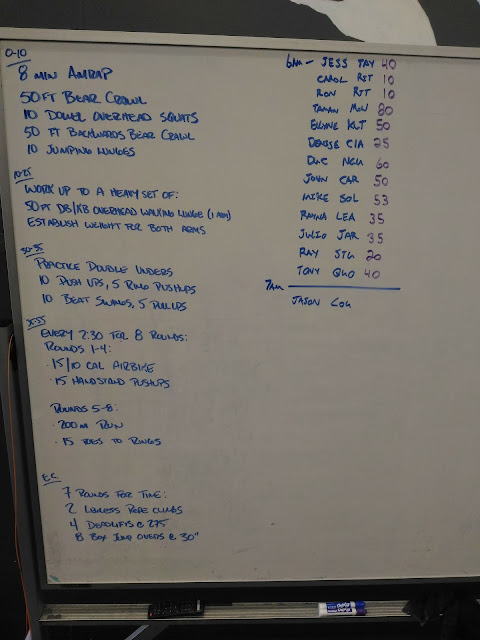 0-10
8 MIN AMRAP
50 FT BEAR CRAWL
10 DOWEL OVERHEAD SQUATS
50 FT BACKWARDS BEAR CRAWL
10 JUMPING LUNGES
10-25
WORK UP TO A HEAVY SET OF:
50FT DB/KB OVERHEAD WALKING LUNGE (1 ARM)
ESTABLISH WEIGHT FOR BOTH ARMS
PRACTICE DOUBLE UNDERS
10 PUSH UPS, 5 RING PUSHUPS
10 BEAT SWINGS, 5 PULLUPS
EVERY 2:30 FOR 8 ROUNDS:
ROUNDS 1-4:
· 15/10 CAL AIRBIKE
· 15 HANDSTAND PUSHUPS
ROUNDS 5-8:
· 200M RUN
· 15 TOES TO RINGS
E.C.
7 ROUNDS FOR TIME:
2 LEGLESS ROPE CLIMBS
4 DEADLIFTS @ 275
8 BOX JUMP OVERS @ 30"
6AM - JESS TAY 40
CAROL RIT 10
RON RIT 10
MON 80
50
DENISE CIA 25
DUC NGU 60
JOHN CAR 50
MIKE SOL 53
LEA 35
JULIO JAR 35
RAY 20
TONY 40
7AM
JASON